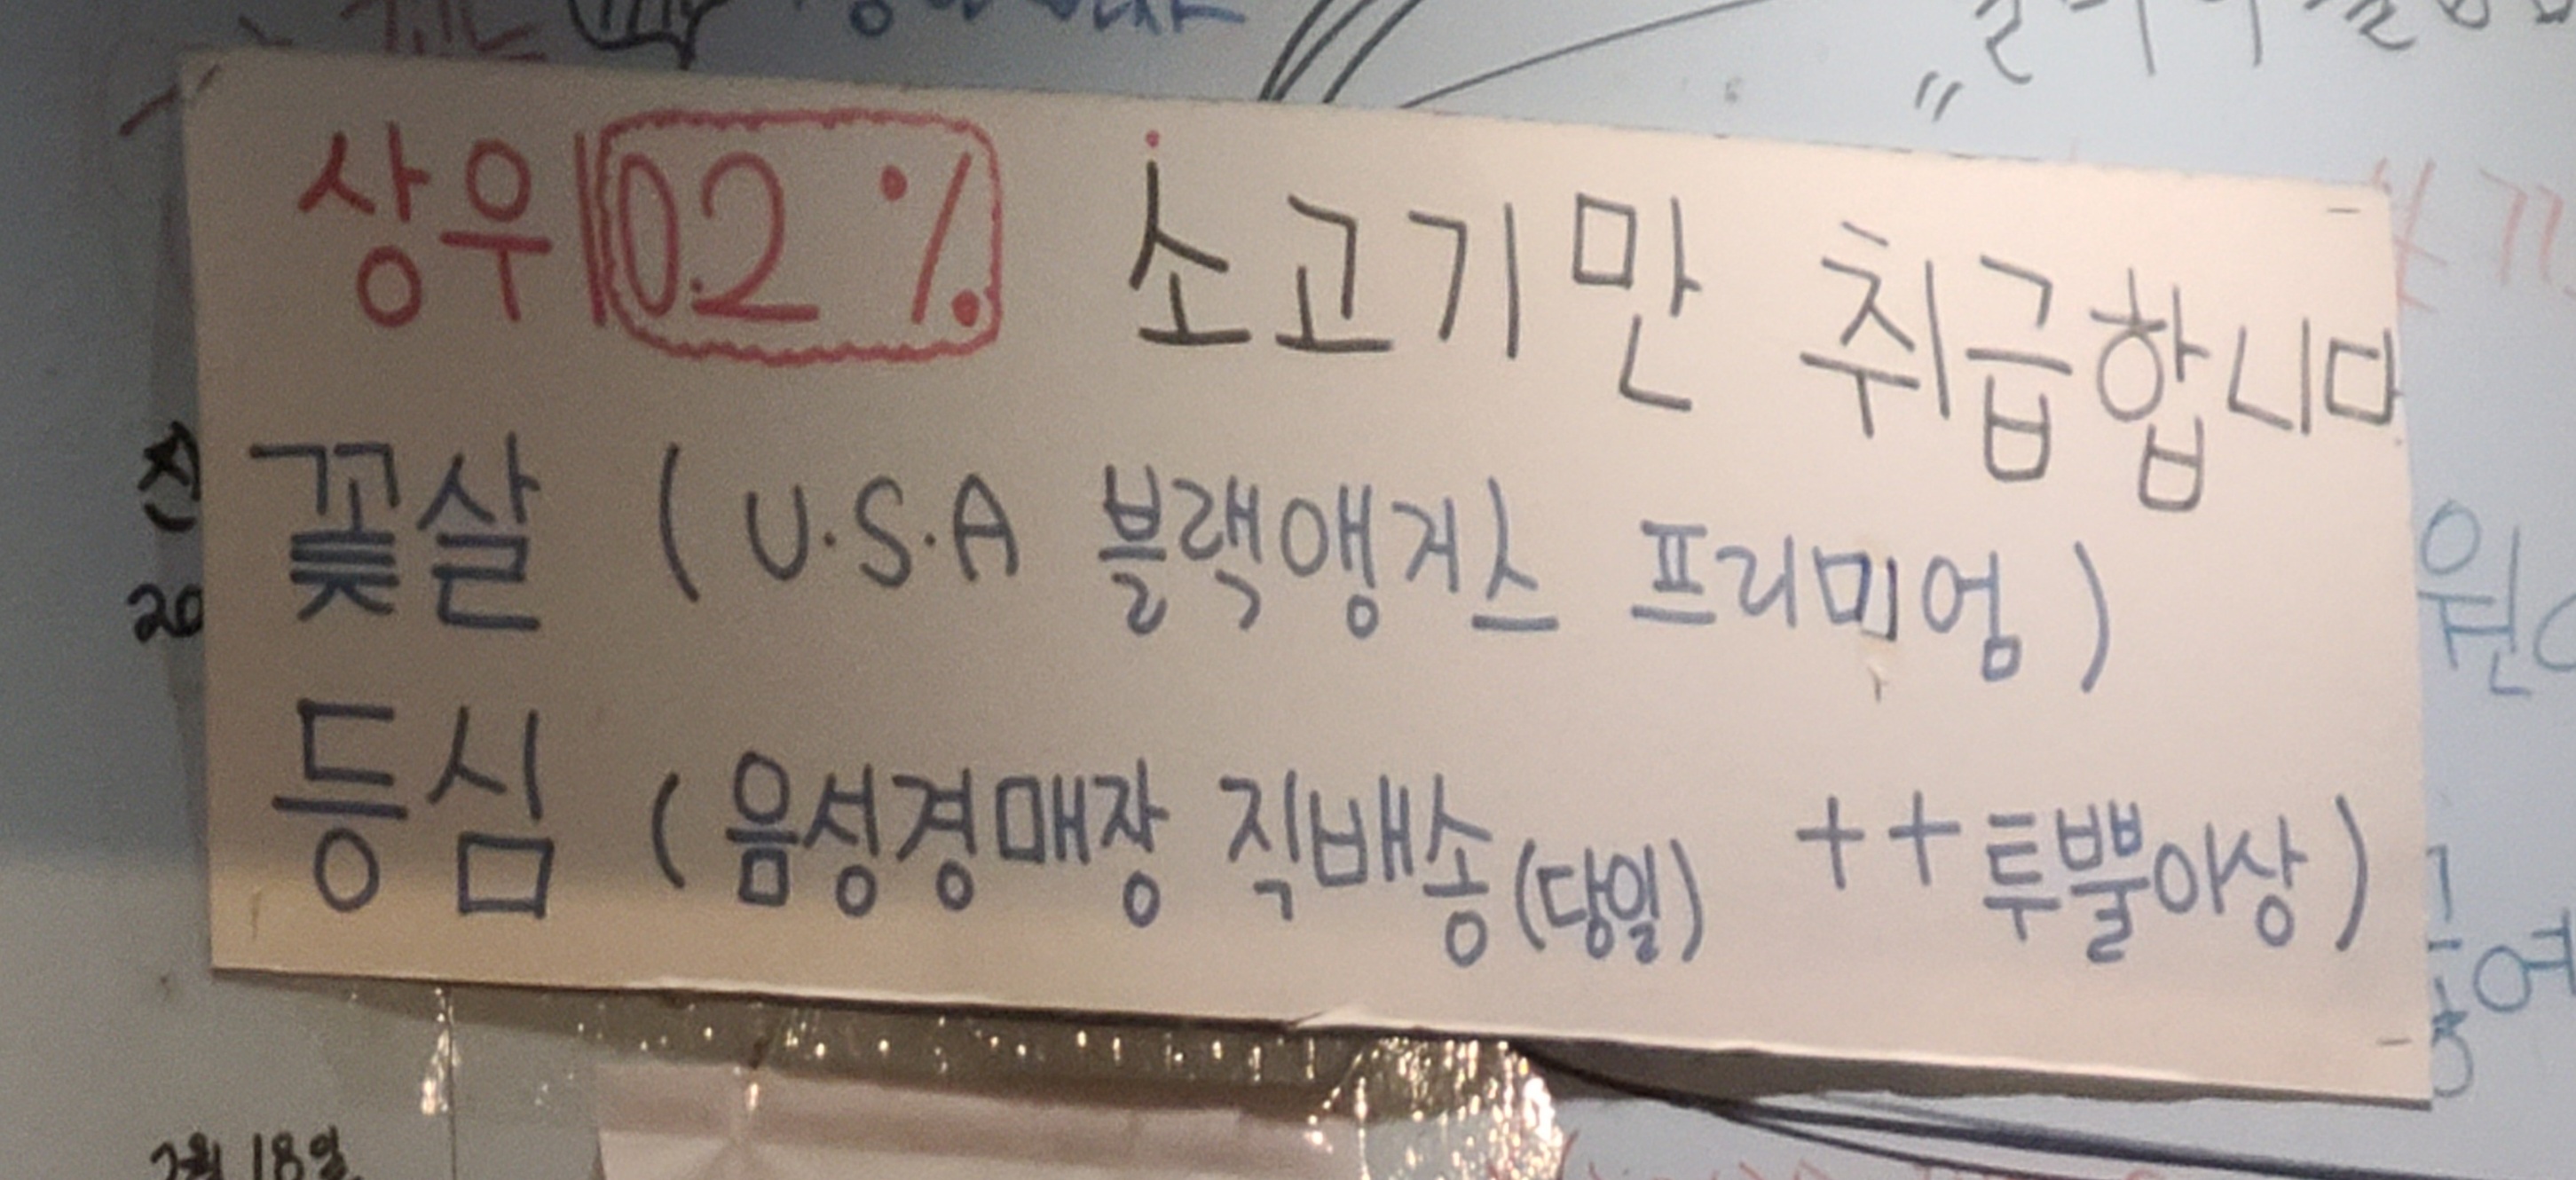 상위 0.2% 소고기만 취급합니다
꽃살 (U.S.A 블랙앵거스 프리미엄)
등심 (음성경매장 직배송(당일) ++투뿔이상)
20
18일